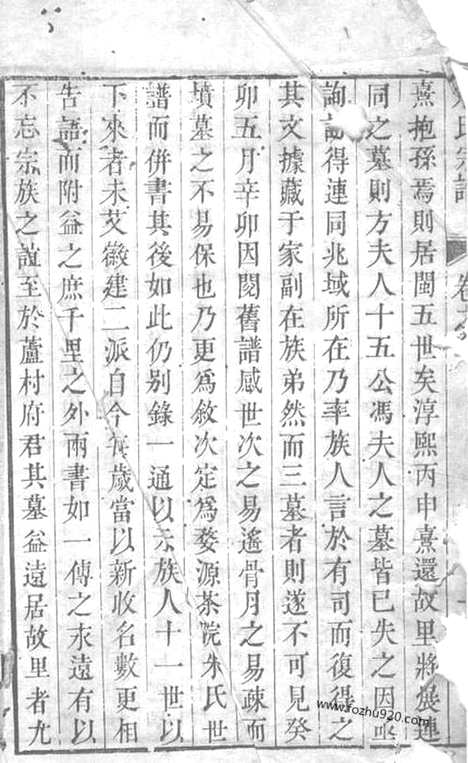 朱氏宗譜 卷之
熹抱孫焉則居閩五世矣淳熙丙申熹還故里將展連
同之墓則方夫人十五公馮夫人之墓皆已失之因亟
詢訪得連同兆域所在乃率族人言於有司而復得之
其文據藏于家副在族弟然而三墓者則遂不可見癸
卯五月辛卯因閱舊譜感世次之易遙骨月之易疎而
墳墓之不易保也乃更為敘次定為婺源茶院朱氏世
譜而併書其後如此仍別錄一通以示族人十一世以
下來者未艾徽建二派自今每歲當以新收名數更相
告語而附益之庶千里之外兩書如一傳之永遠有以
不忘宗族之誼至於蘆村府君其墓益遠居故里者尤
www.fozhu920.com